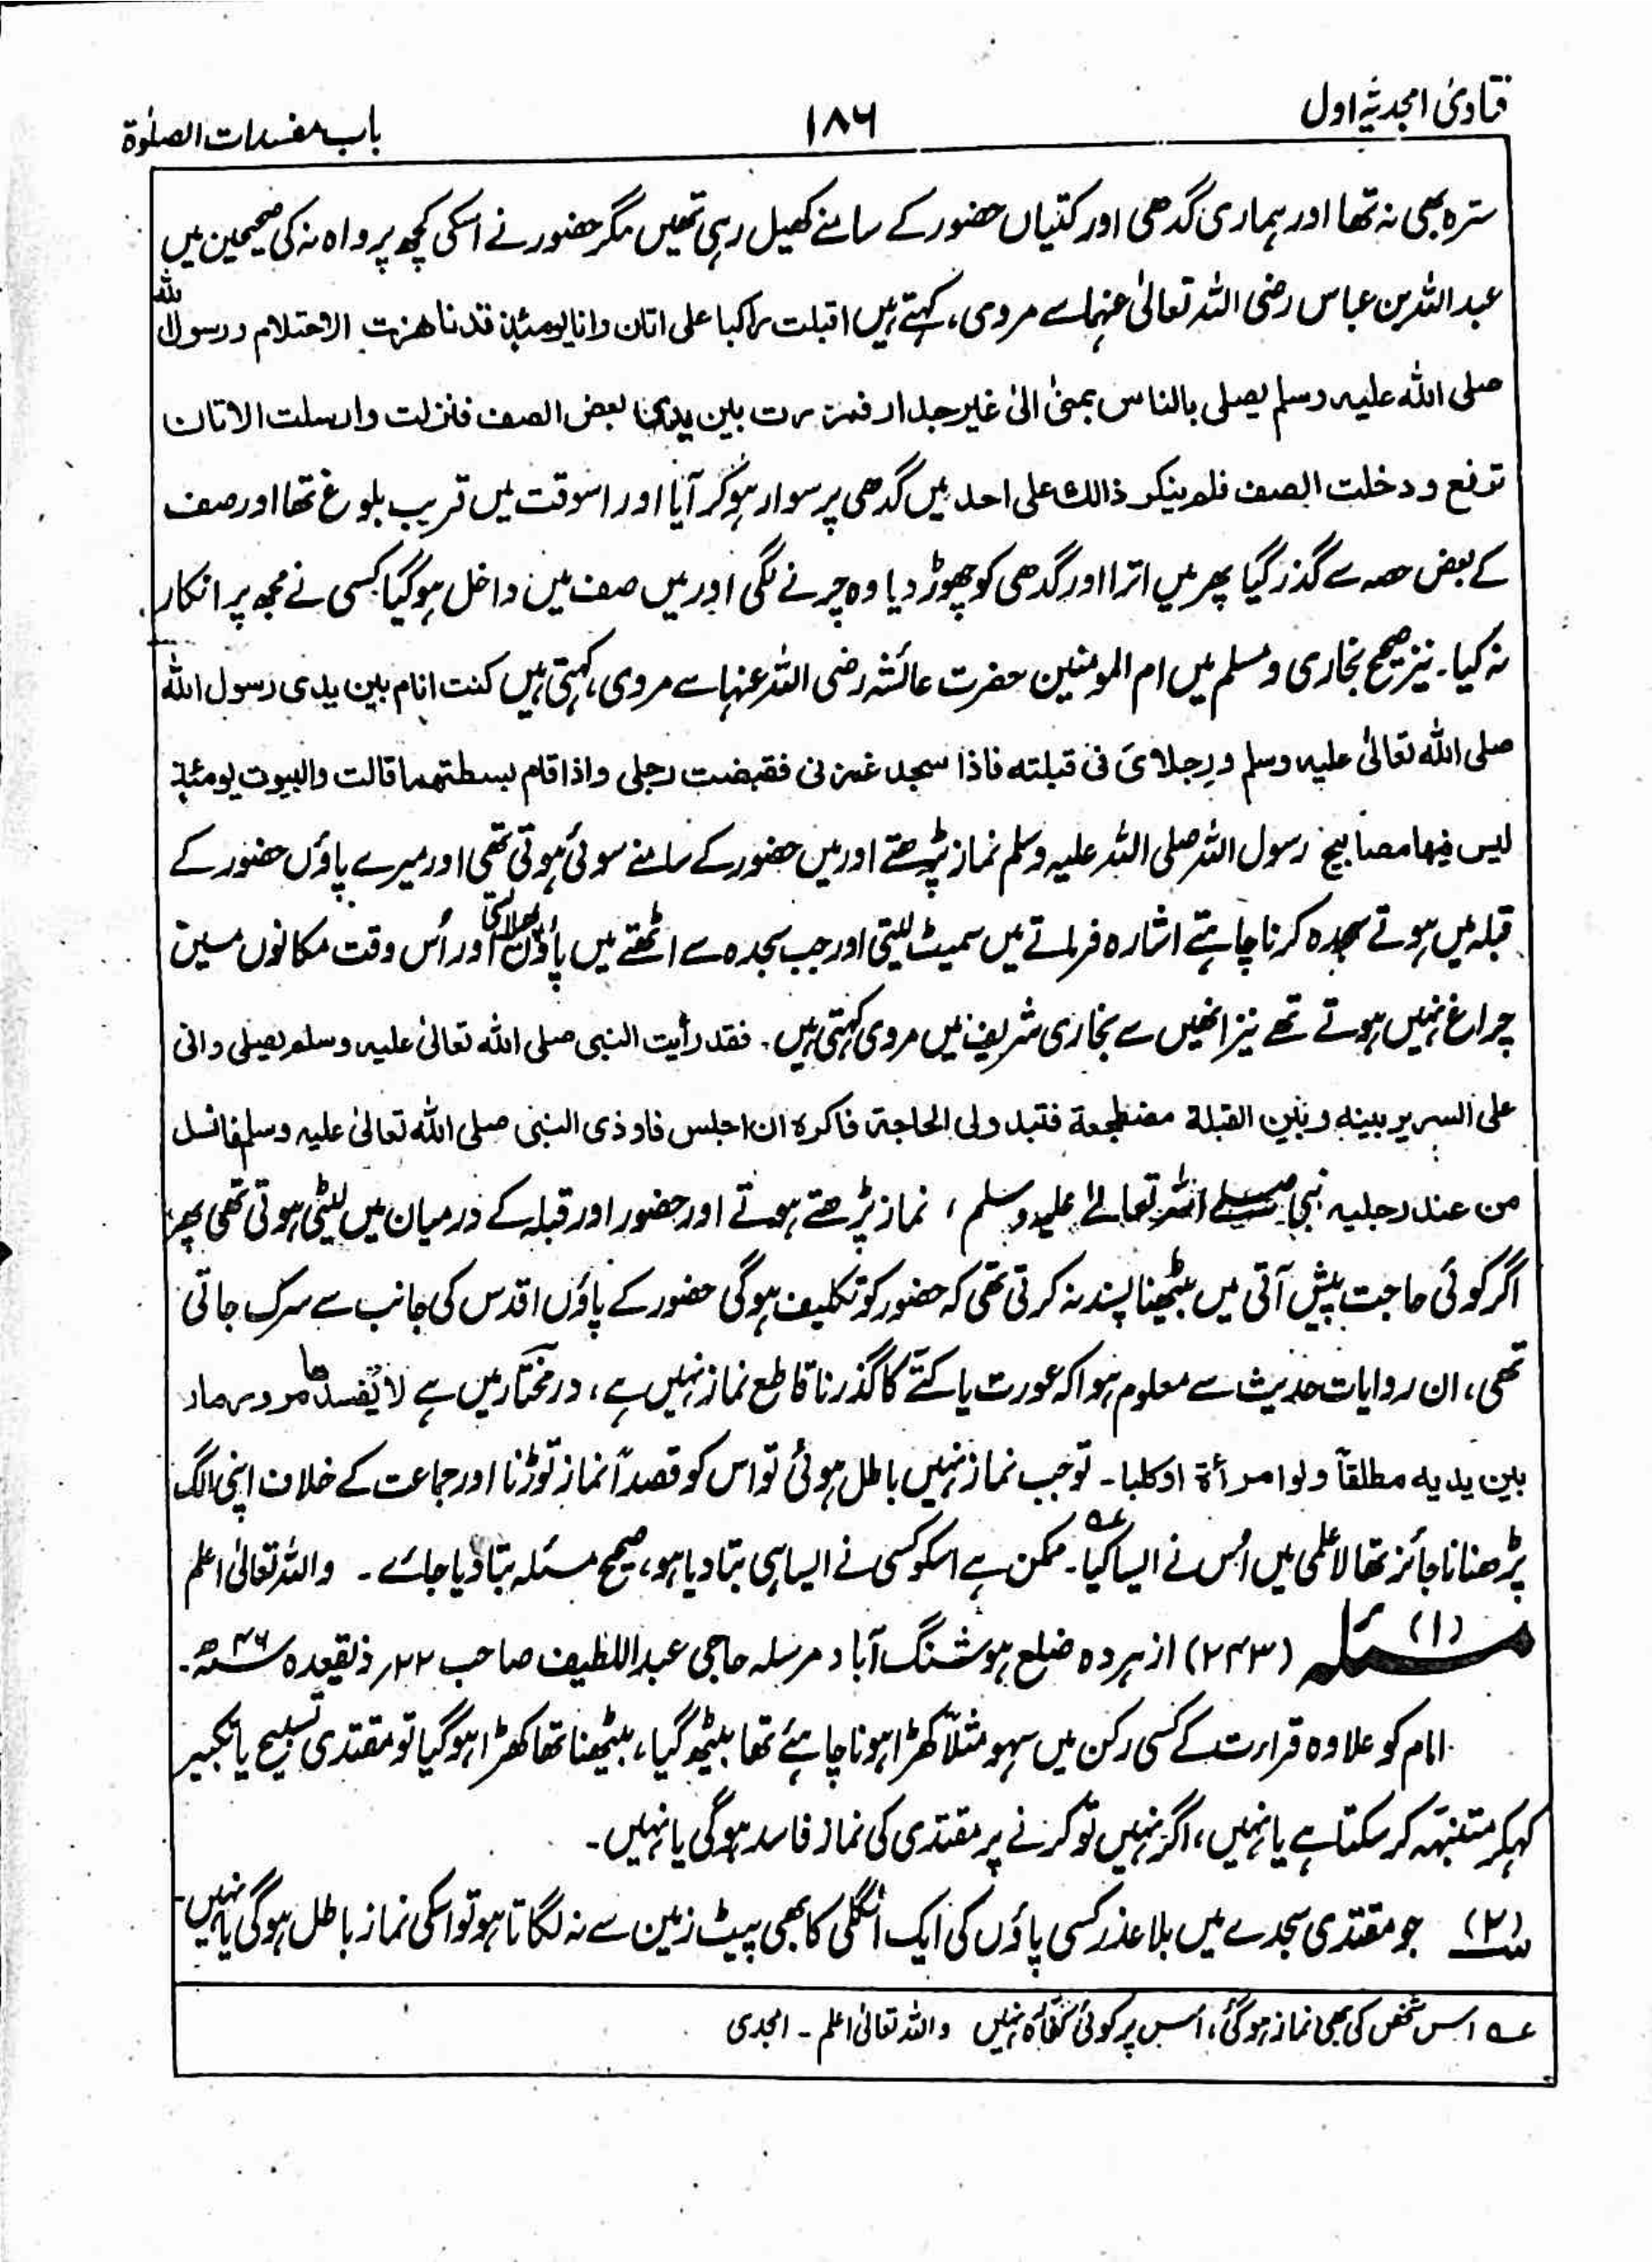 فتاویٰ امجدیہ اول
۱۸۶
باب مفسدات الصلوٰة
سترہ بھی نہ تھا اور ہماری گدھی اور کتیاں حضور کے سامنے کھیل رہی تھیں مگر حضور نے اسکی کچھ پرواہ نہ کی صحیحین میں
عبد اللہ بن عباس رضی اللہ تعالیٰ عنہما سے مروی، کہتے ہیں اقبلت راکبا علی اتان وانا یومئذ قد ناھزت الاحتلام ورسول اللہ
صلی اللہ علیہ وسلم یصلی بالناس بمنیٰ الیٰ غیر جدار فمررت بین یدی بعض الصف فنزلت وارسلت الاتان
ترتع ودخلت الصف فلم ینکر ذالک علی احد میں گدھی پر سوار ہو کر آیا اور اسوقت میں قریب بلوغ تھا اور صف
کے بعض حصہ سے گذر گیا پھر میں اترا اور گدھی کو چھوڑ دیا وہ چرنے لگی اور میں صف میں داخل ہو گیا کسی نے مجھ پر انکار
نہ کیا۔ نیز صحیح بخاری و مسلم میں ام المومنین حضرت عائشہ رضی اللہ عنہا سے مروی، کہتی ہیں کنت انام بین یدی رسول اللہ
صلی اللہ تعالیٰ علیہ وسلم ورجلای فی قبلتہ فاذا سجد غمزنی فقبضت رجلی واذا قام بسطتھما قالت والبیوت یومئذ
لیس فیھا مصابیح رسول اللہ صلی اللہ علیہ وسلم نماز پڑھتے اور میں حضور کے سامنے سوئی ہوتی تھی اور میرے پاؤں حضور کے
قبلہ میں ہوتے سجدہ کرنا چاہتے اشارہ فرماتے میں سمیٹ لیتی اور جب سجدہ سے اٹھتے میں پاؤں پھیلاتی اور اُس وقت مکانوں میں
چراغ نہیں ہوتے تھے نیز انھیں سے بخاری شریف میں مروی کہتی ہیں۔ فقد رأیت النبی صلی اللہ تعالیٰ علیہ وسلم یصلی وانی
علی السریر بینہ وبین القبلة مضطجعة فتبدولی الحاجة فاکرہ ان اجلس فاوذی النبی صلی اللہ تعالیٰ علیہ وسلم فانسل
من عند رجلیہ نبی صلی اللہ تعالےٰ علیہ وسلم، نماز پڑھتے ہوتے اور حضور اور قبلہ کے درمیان میں لیٹی ہوتی تھی پھر
اگر کوئی حاجت پیش آتی میں بیٹھنا پسند نہ کرتی تھی کہ حضور کو تکلیف ہوگی حضور کے پاؤں اقدس کی جانب سے سرک جاتی
تھی، ان روایات حدیث سے معلوم ہوا کہ عورت یا کتے کا گذرنا قاطع نماز نہیں ہے، در مختار میں ہے لا یفسدھا مرور مار
بین یدیہ مطلقاً ولو امرأة اوکلبا۔ تو جب نماز نہیں باطل ہوئی تو اس کو قصداً نماز توڑنا اور جماعت کے خلاف اپنی الگ
پڑھنا ناجائز تھا لا علمی میں اُس نے ایسا کیا عہ۔ ممکن ہے اسکو کسی نے ایسا ہی بتا دیا ہو، صحیح مسئلہ بتا دیا جائے۔ واللہ تعالیٰ اعلم
مسئلہ (۱) (۲۴۳) از ہردہ ضلع ہوشنگ آباد مرسلہ حاجی عبد اللطیف صاحب ۲۲ ذیقعدہ سنہ ۴۶ھ۔
امام کو علاوہ قراءت کے کسی رکن میں سہو مثلاً کھڑا ہونا چاہئے تھا بیٹھ گیا، بیٹھنا تھا کھڑا ہو گیا تو مقتدی تسبیح یا تکبیر
کہکر متنبہ کر سکتا ہے یا نہیں، اگر نہیں تو کرنے پر مقتدی کی نماز فاسد ہوگی یا نہیں۔
(۲) جو مقتدی سجدے میں بلا عذر کسی پاؤں کی ایک انگلی کا بھی پیٹ زمین سے نہ لگاتا ہو تو اسکی نماز باطل ہوگی یا نہیں۔
عہ اس شخص کی بھی نماز ہو گئی، اُس پر کوئی کفارہ نہیں واللہ تعالیٰ اعلم۔ امجدی